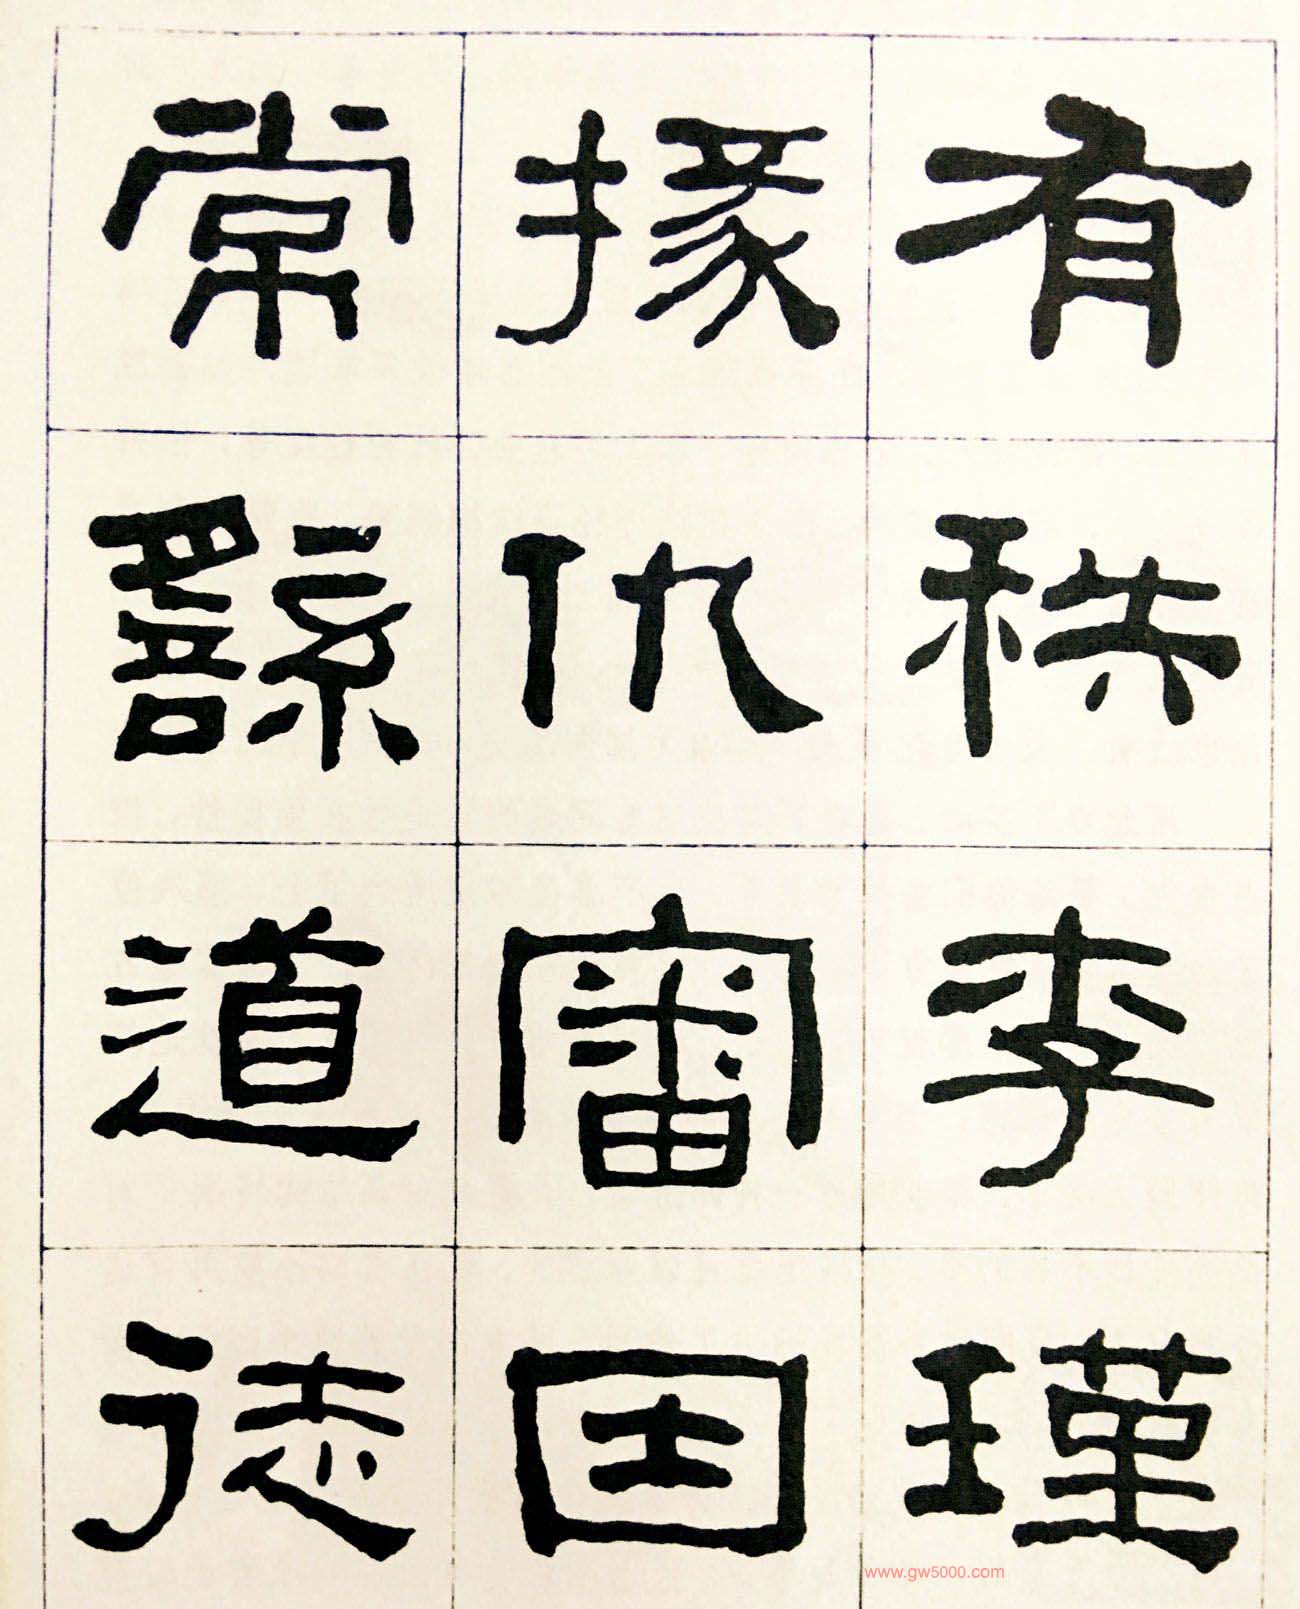 有秩李瑾
掾仇審因
常繇道徒
www.gw5000.com